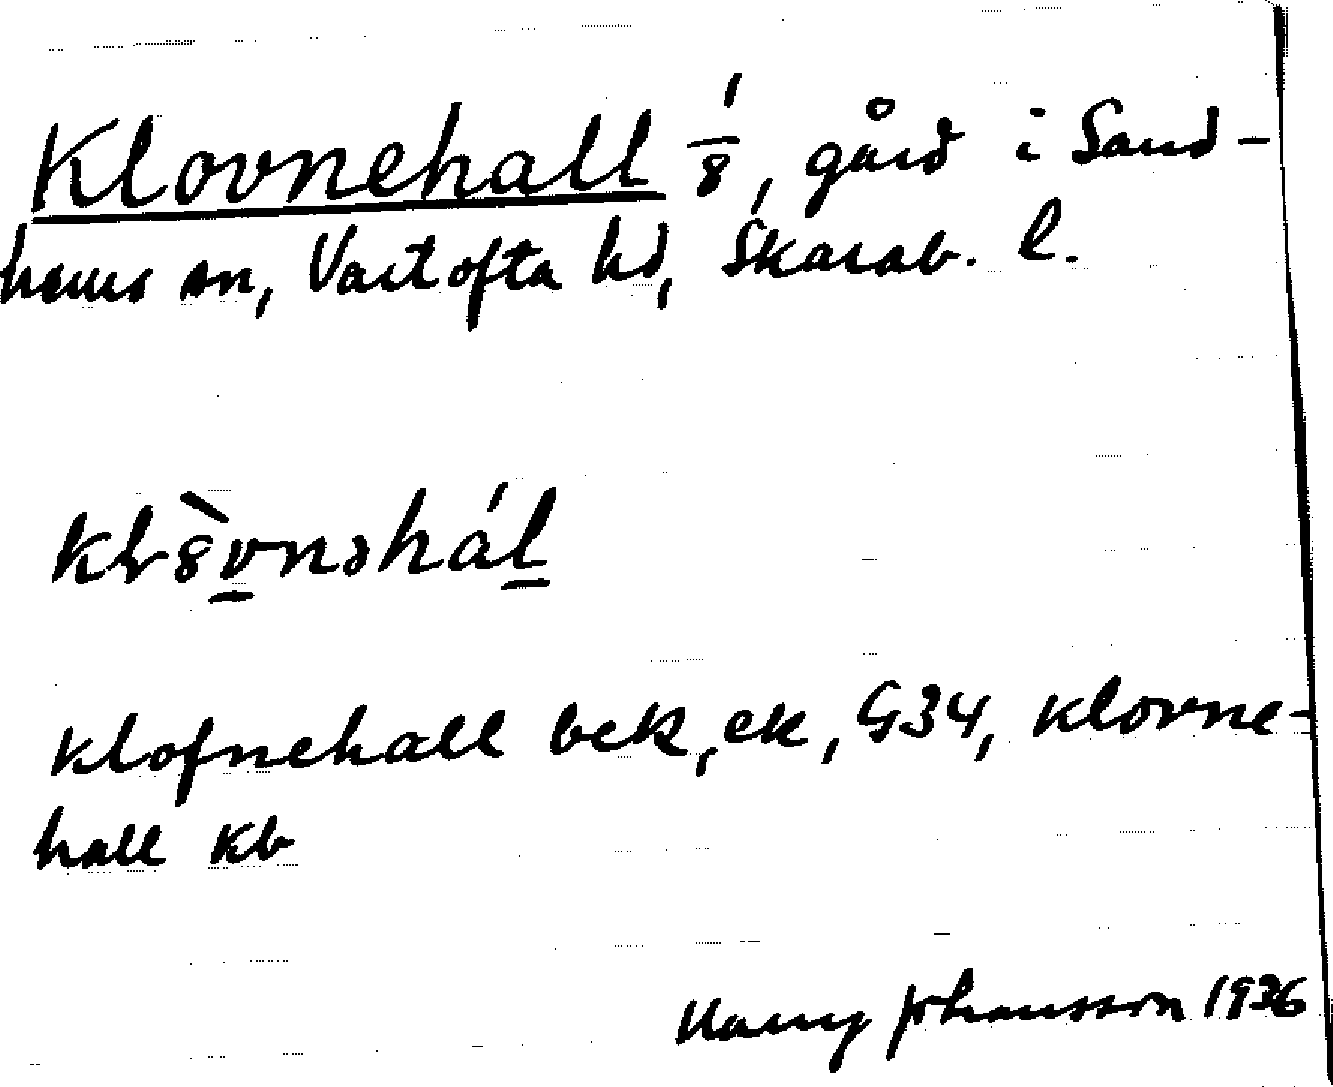 Klovnehall 1/8, gård i Sand-
hems sn, Vartofta hd, Skarab. l.
klofnehall bek, ek, G34, klovne-
hall kb
Harry Johansson 1936